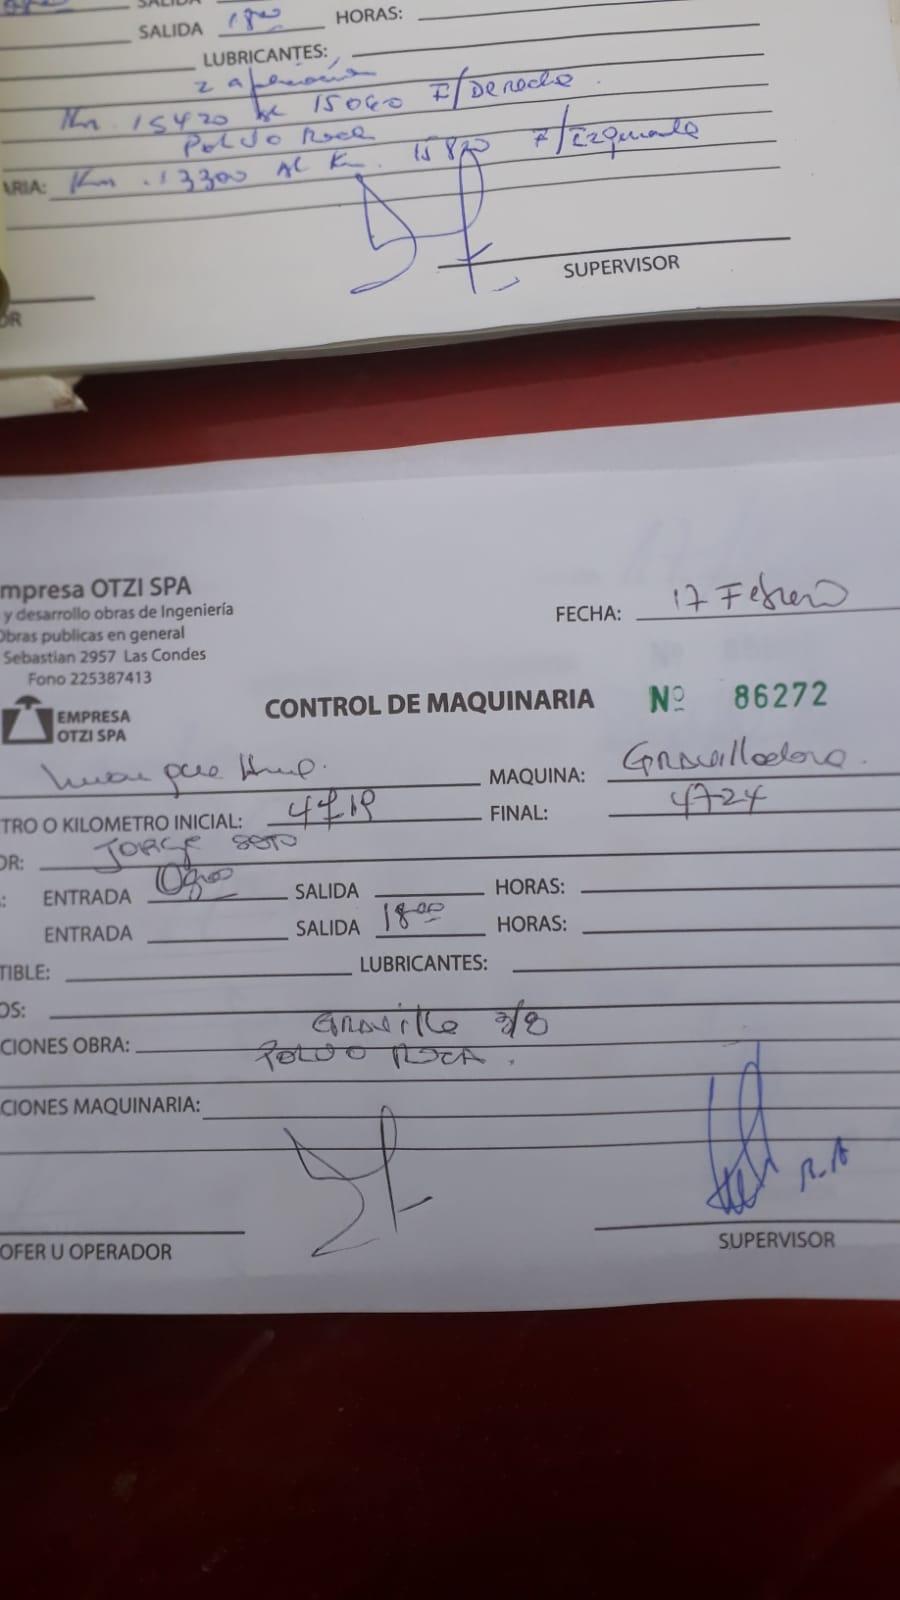 SALIDA
SALIDA 18:00 HORAS:
LUBRICANTES:
2 aplicación
Km. 15420 al 15060 F/Derecha.
POLVO Roca
ARIA: Km. 13300 AL Km. 15820 F/Izquierda
SUPERVISOR
OR
mpresa OTZI SPA
y desarrollo obras de Ingeniería
Obras publicas en general
Sebastian 2957 Las Condes
Fono 225387413
FECHA: 17 Febrero
EMPRESA
OTZI SPA
CONTROL DE MAQUINARIA Nº 86272
MAQUINA: GRAVilladora.
TRO O KILOMETRO INICIAL: 4719 FINAL: 4724
OR: JORGE SOTO
: ENTRADA 08:00 SALIDA HORAS:
ENTRADA SALIDA 18:00 HORAS:
TIBLE: LUBRICANTES:
OS:
GRAVilla 3/8
CIONES OBRA: POLVO ROCA.
CIONES MAQUINARIA:
R.A
OFER U OPERADOR SUPERVISOR